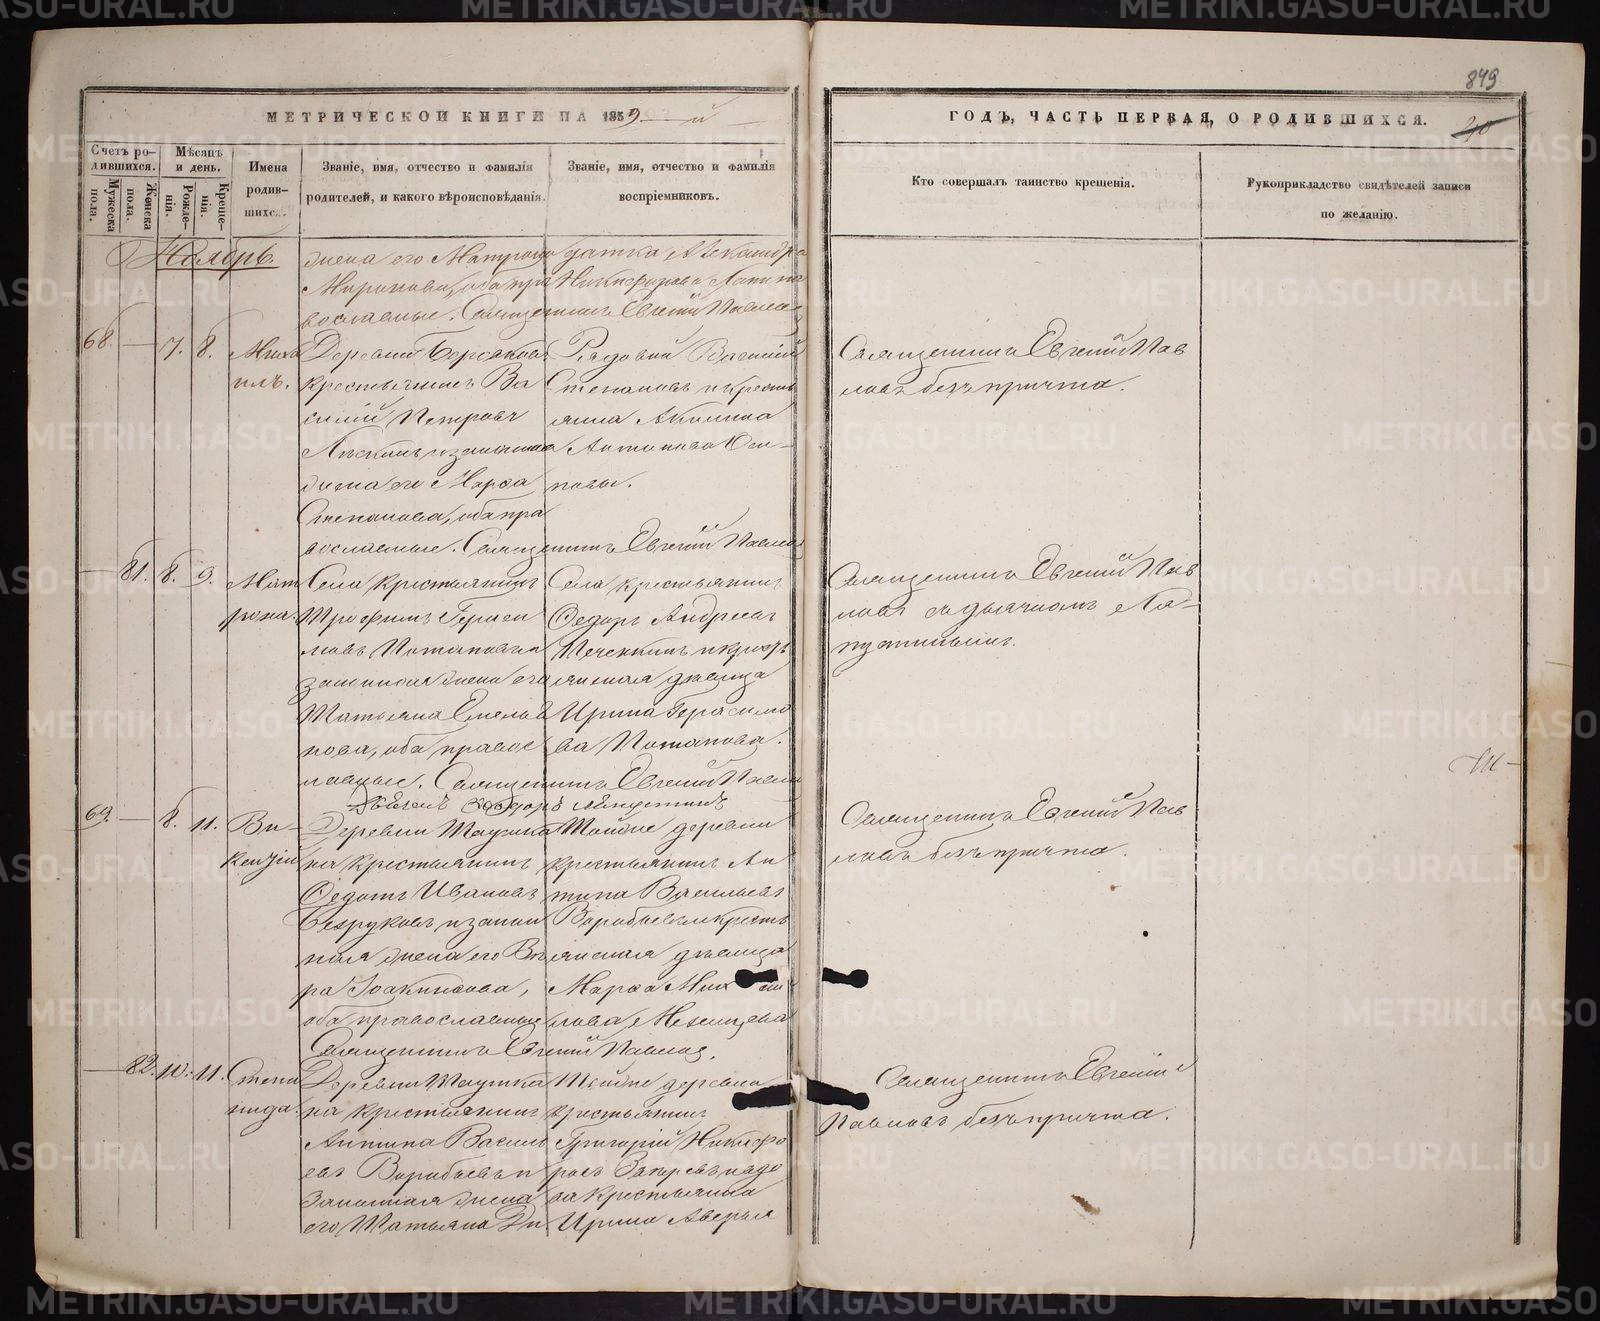 849
МЕТРИЧЕСКОЙ КНИГИ НА 1859 й
ГОДЪ, ЧАСТЬ ПЕРВАЯ, О РОДИВШИХСЯ.
Счетъ родившихся.
Мужеска пола.
Женска пола.
Мѣсяцъ и день.
Рожденія.
Крещенія.
Имена родившихся.
Званіе, имя, отчество и фамилія
родителей, и какого вѣроисповѣданія.
Званіе, имя, отчество и фамилія
воспріемниковъ.
Кто совершалъ таинство крещенія.
Рукоприкладство свидѣтелей записи
по желанію.
Ноябрь.
жена его Матрона
Миронова, оба пра
вославные. Священникъ Евгеній Павлов
Александра
Никифорова
68. — 7. 8.
Миха
илъ.
Деревни
крестьянинъ Ва
силій Петровъ
и законная
жена его Марѳа
Степанова, оба пра
вославные. Священникъ Евгеній Павлов
Рядовой Василій
Степановъ и кресть
янка Акилина
Антонова Оси-
пова.
Священникъ Евгеній Пав
ловъ безъ причта.
— 81. 8. 9.
Мат
рона.
Села крестьянинъ
Трофимъ Гераси
мовъ Потаповъ и
законная жена его
Татьяна Емелья
нова, оба правос
лавные. Священникъ Евгеній Павлов
Села крестьянинъ
Ѳедоръ Андреевъ
Печенкинъ и кресть
янская дѣвица
Ирина Герасимо
ва Потапова.
Священникъ Евгеній Пав
ловъ съ дьячкомъ Ла-
69. — 8. 11.
Ви-
кентій
Деревни
на крестьянинъ
Ѳедотъ Ивановъ
Безруковъ и закон
ная жена его Вѣ
ра Іоакимова,
оба православные
Священникъ Евгеній Павлов.
Тойже деревни
крестьянинъ Ан
типа Васильевъ
Воробьевъ и кресть
янская дѣвица
Марѳа Ми
лова
Священникъ Евгеній Пав
ловъ безъ причта.
— 82. 10. 11.
Степа
нида.
Деревни
на крестьянинъ
Антипа Василь
евъ Воробьевъ и
Законная жена
его Татьяна
Тойже деревни
крестьянинъ
Григорій Никифо
ровъ
ва крестьянка
Ирина Аверья
Священникъ Евгеній
Павловъ безъ причта.
METRIKI.GASO-URAL.RU